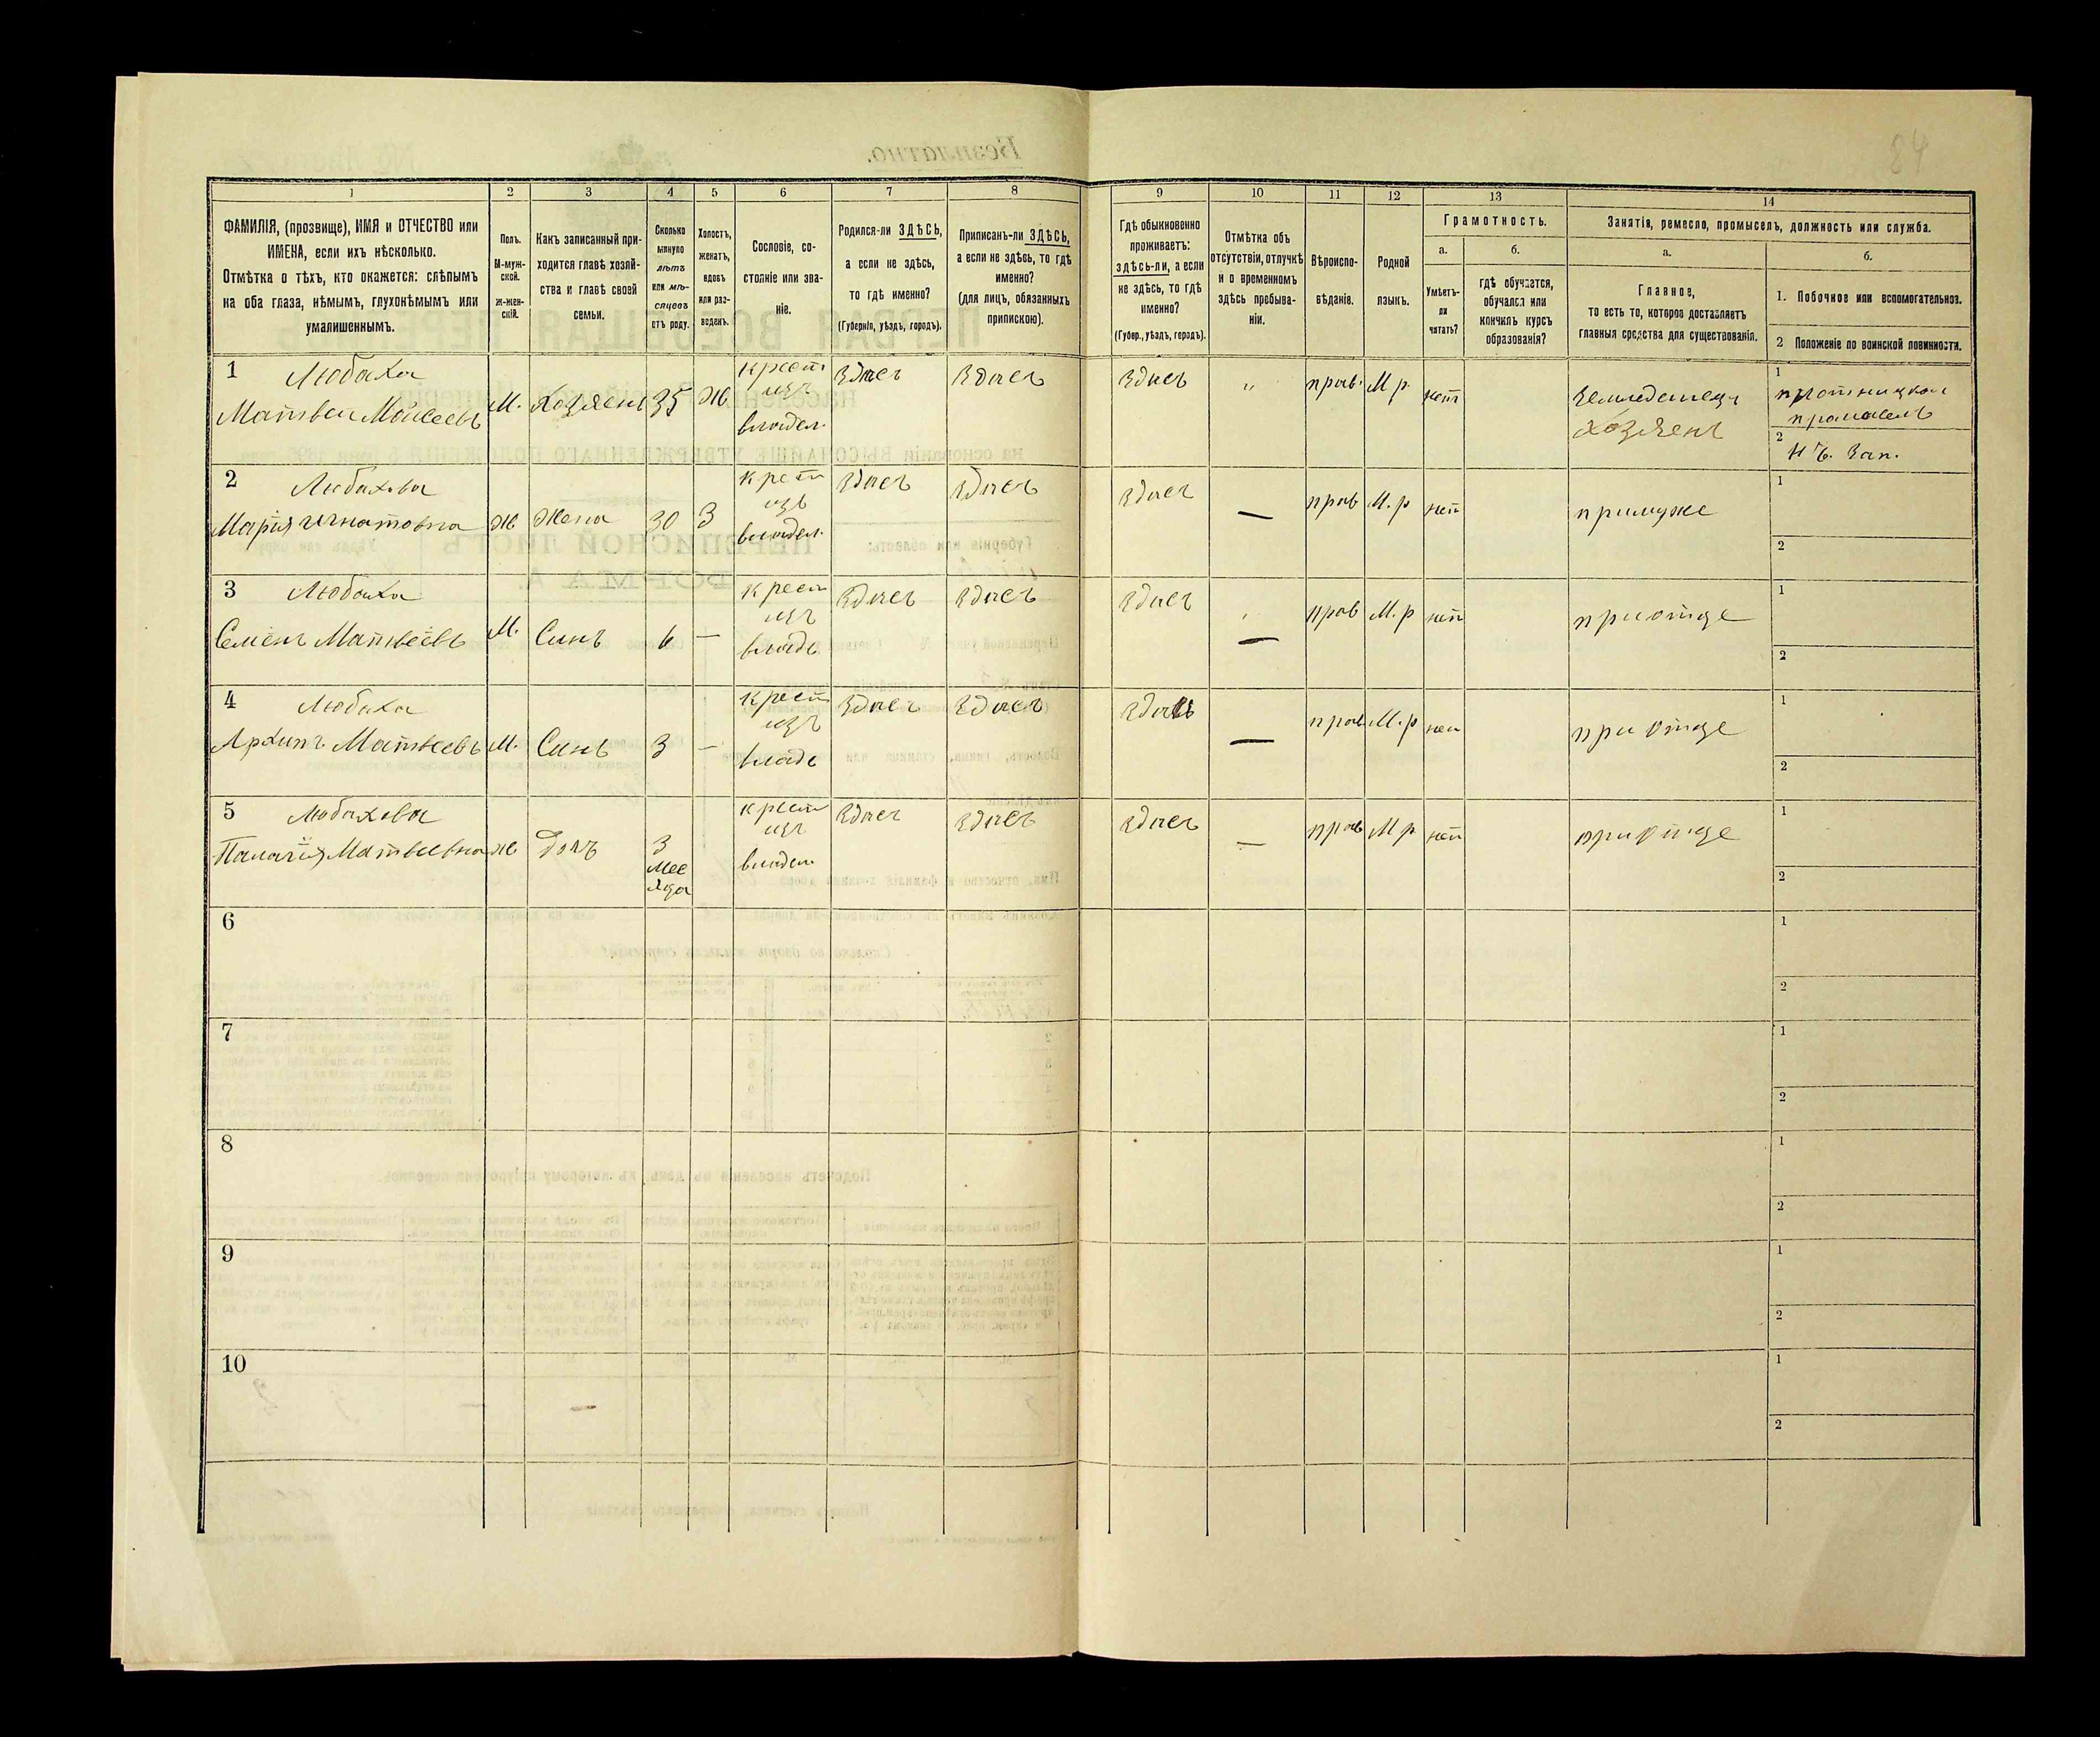 84
1 2 3 4 5 6 7 8 9 10 11 12 13 14
ФАМИЛІЯ, (прозвище), ИМЯ и ОТЧЕСТВО или
ИМЕНА, если ихъ нѣсколько.
Отмѣтка о тѣхъ, кто окажется: слѣпымъ
на оба глаза, нѣмымъ, глухонѣмымъ или
умалишеннымъ.
Полъ.
М-муж-
ской.
ж-жен-
скій.
Какъ записанный при-
ходится главѣ хозяй-
ства и главѣ своей
семьи.
Сколько
минуло
лѣтъ
или мѣ-
сяцевъ
отъ роду.
Холостъ,
женатъ,
вдовъ
или раз-
веденъ.
Сословіе, со-
стояніе или зва-
ніе.
Родился-ли ЗДѢСЬ,
а если не здѣсь,
то гдѣ именно?
(Губернія, уѣздъ, городъ).
Приписанъ-ли ЗДѢСЬ,
а если не здѣсь, то гдѣ
именно?
(для лицъ, обязанныхъ
припискою).
Гдѣ обыкновенно
проживаетъ:
здѣсь-ли, а если
не здѣсь, то гдѣ
именно?
(Губер., уѣздъ, городъ).
Отмѣтка объ
отсутствіи, отлучкѣ
и о временномъ
здѣсь пребыва-
ніи.
Вѣроиспо-
вѣданіе.
Родной
языкъ.
Грамотность.
а.
Умѣетъ-
ли
читать?
б.
гдѣ обучается,
обучался или
кончилъ курсъ
образованія?
Занятія, ремесло, промыселъ, должность или служба.
а.
Главное,
то есть то, которое доставляетъ
главныя средства для существованія.
б.
1. Побочное или вспомогательное.
2 Положеніе по воинской повинности.
1 Любаха
Матвеи Моисеевъ М. Хозяенъ 35 Ж
крест
изъ
владел.
Здись Здись Здись " прав. М р. нет
Земледелецъ
Хозяенъ
1
плотницкои
промаселъ
2
Н Ч. Зап.
2 Любахова
Марія Игнатовна ж Жена 30 З
крест
изъ
владел.
Здись Здись Здись — прав М. р нет примуже
1
2
3 Любаха
Семенъ Матвеевъ М. Синъ 6 —
крест
изъ
владе
Здись Здись Здись — прав М. р нет при отце
1
2
4 Любаха
Архипъ Матвеевъ М. Синъ 3 —
крест
изъ
владе
Здись Здись Здись — прав М. р нет при отце
1
2
5 Любахова
Палагія Матвеевна ж Доч 3
мес
яца
крест
изъ
владел
Здись Здись Здись — прав М р нет при отце
1
2
6
1
2
7
1
2
8
1
2
9
1
2
10 —
1
2